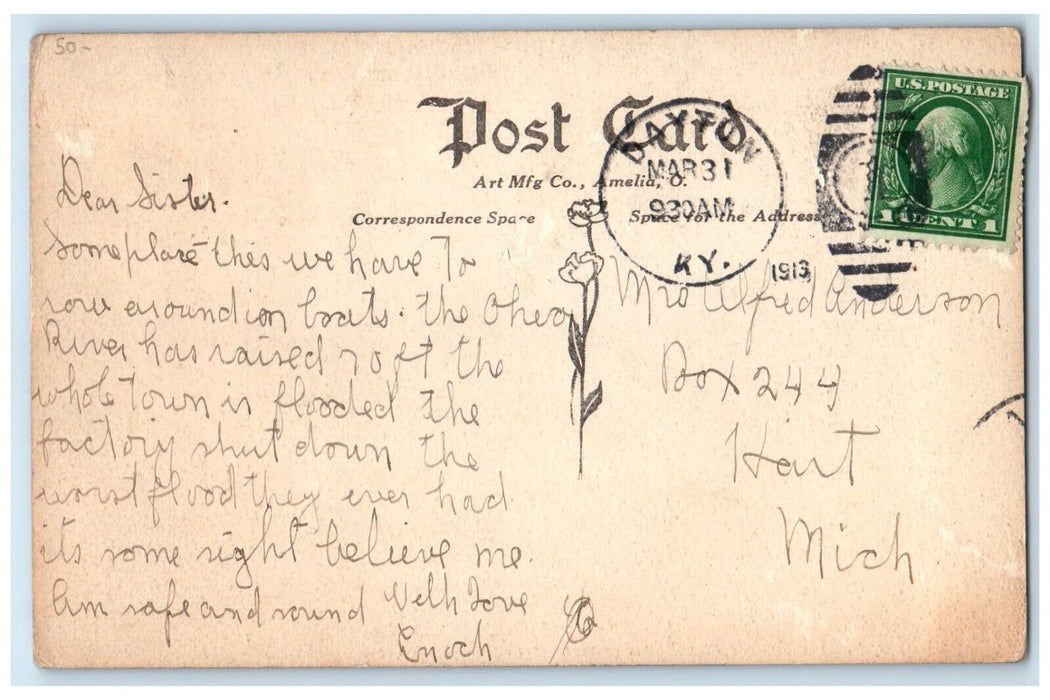 50-
Post Card
Art Mfg Co., Amelia, O.
Correspondence Space
Space for the Address
DAYTON
MAR 31
930AM
KY.
1913
U.S. POSTAGE
1 CENT 1
Dear Sister.
Someplace this we have to
row around in boats. the Oheo
River has raised 70 ft the
whole town is flooded the
factory shut down the
worst flood they ever had
its some sight believe me.
Am safe and sound With Love
Enoch
Mrs Alfred Anderson
Box 244
Hart
Mich